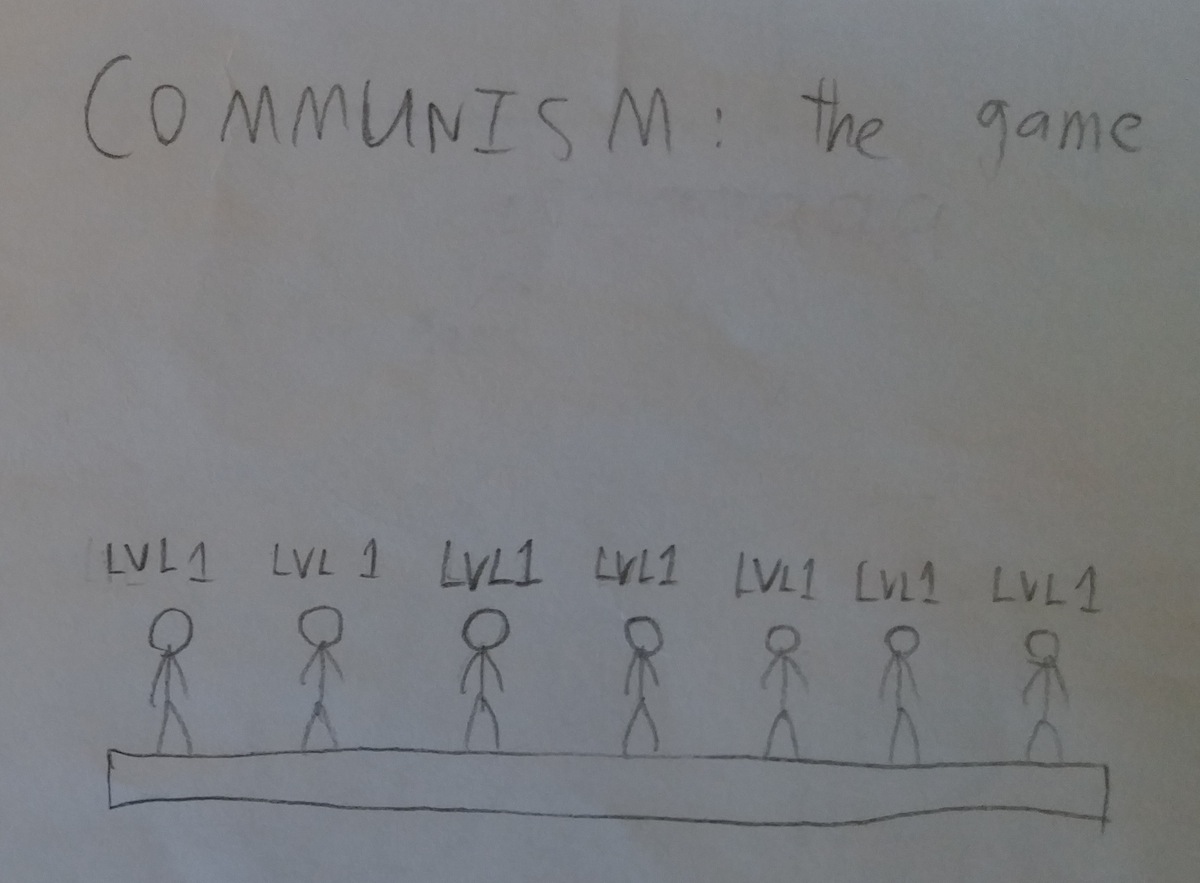 COMMUNISM: the game
LVL1 LVL 1 LVL1 LVL1 LVL1 LVL1 LVL 1